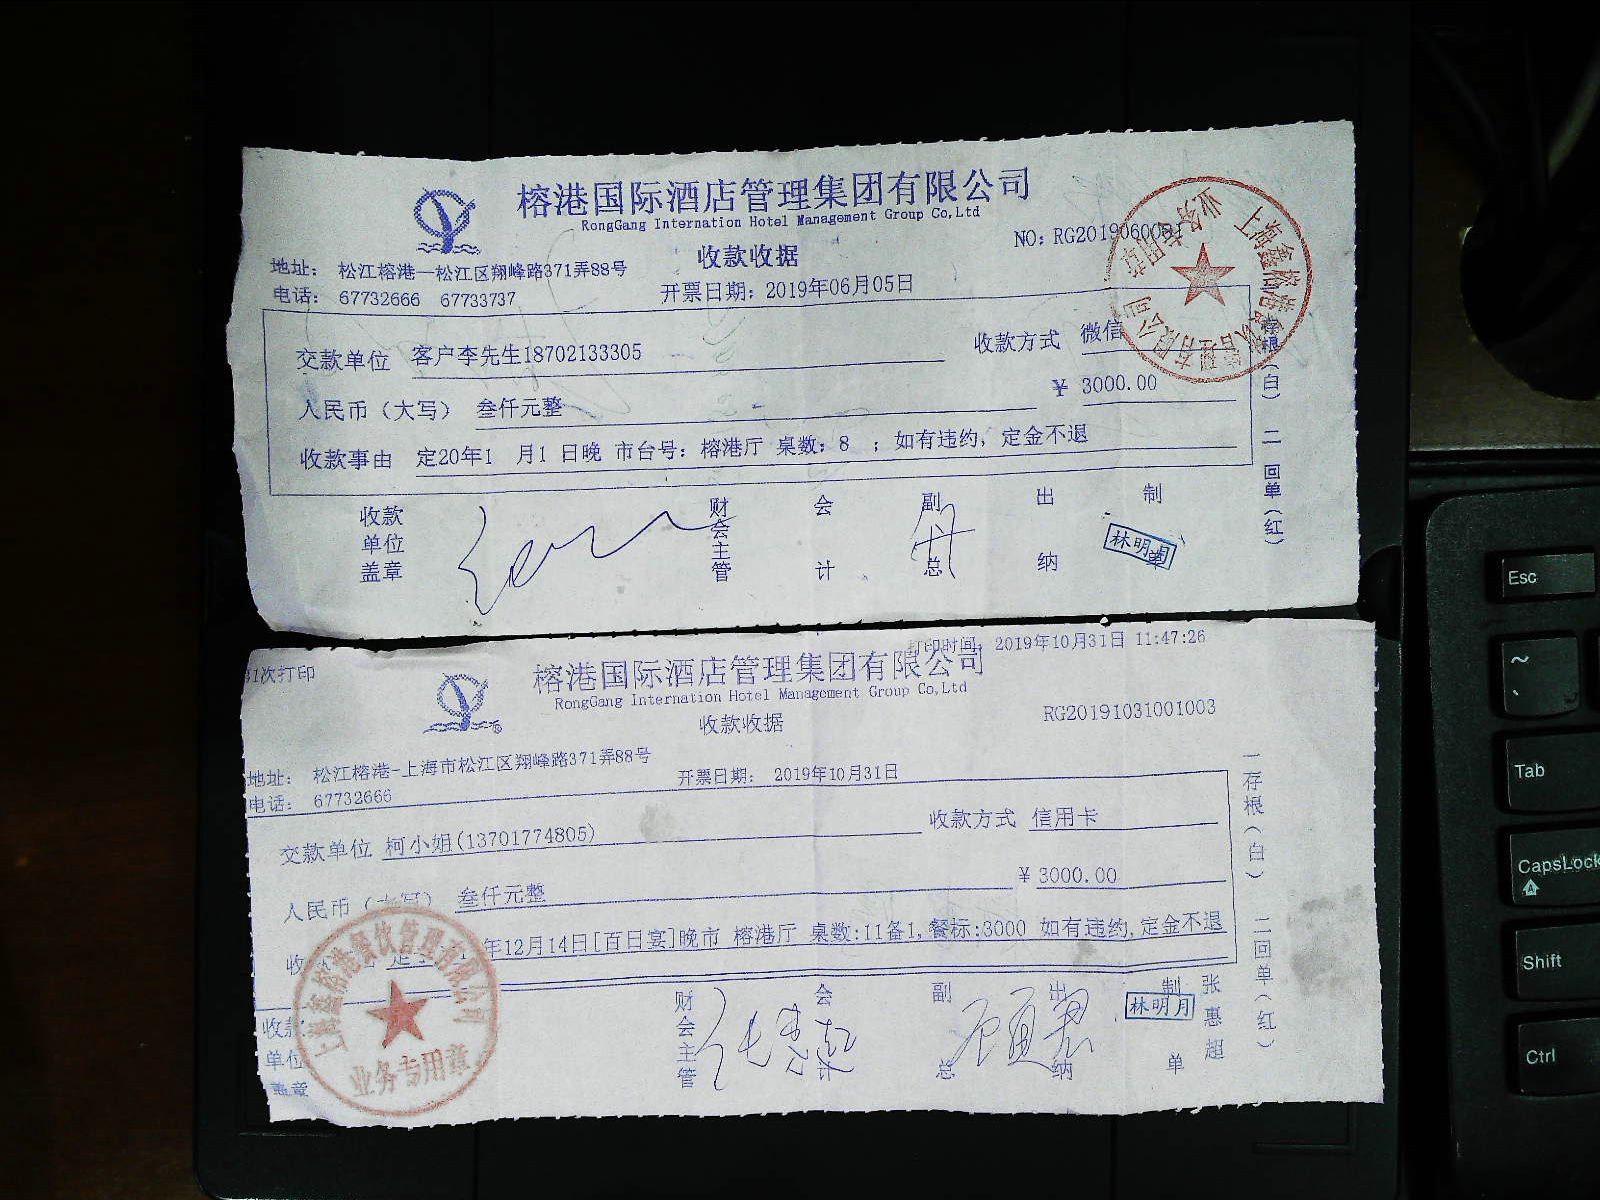 榕港国际酒店管理集团有限公司
RongGang Internation Hotel Management Group Co,Ltd
收款收据
NO: RG201906000
地址: 松江榕港—松江区翔峰路371弄88号
电话: 67732666 67733737
开票日期: 2019年06月05日
交款单位 客户李先生18702133305
收款方式 微信
人民币（大写） 叁仟元整
¥ 3000.00
收款事由 定20年1 月1 日晚 市台号: 榕港厅 桌数: 8 ; 如有违约, 定金不退
根（白） 二 回单（红）
收款单位盖章
财会主管
会计
副总
出纳
制单
林明月
上海鑫榕港餐饮管理有限公司
业务专用章
31次打印
打印时间: 2019年10月31日 11:47:26
榕港国际酒店管理集团有限公司
RongGang Internation Hotel Management Group Co,Ltd
收款收据
RG20191031001003
地址: 松江榕港-上海市松江区翔峰路371弄88号
电话: 67732666
开票日期: 2019年10月31日
交款单位 柯小姐(13701774805)
收款方式 信用卡
人民币（大写） 叁仟元整
¥ 3000.00
收 年12月14日[百日宴]晚市 榕港厅 桌数:11备1,餐标:3000 如有违约,定金不退
一存根（白） 二回单（红）
收款单位盖章
财会主管
会计
副总
出纳
制单
林明月
张惠超
上海鑫榕港餐饮管理有限公司
业务专用章
Esc
~
Tab
CapsLock
Shift
Ctrl